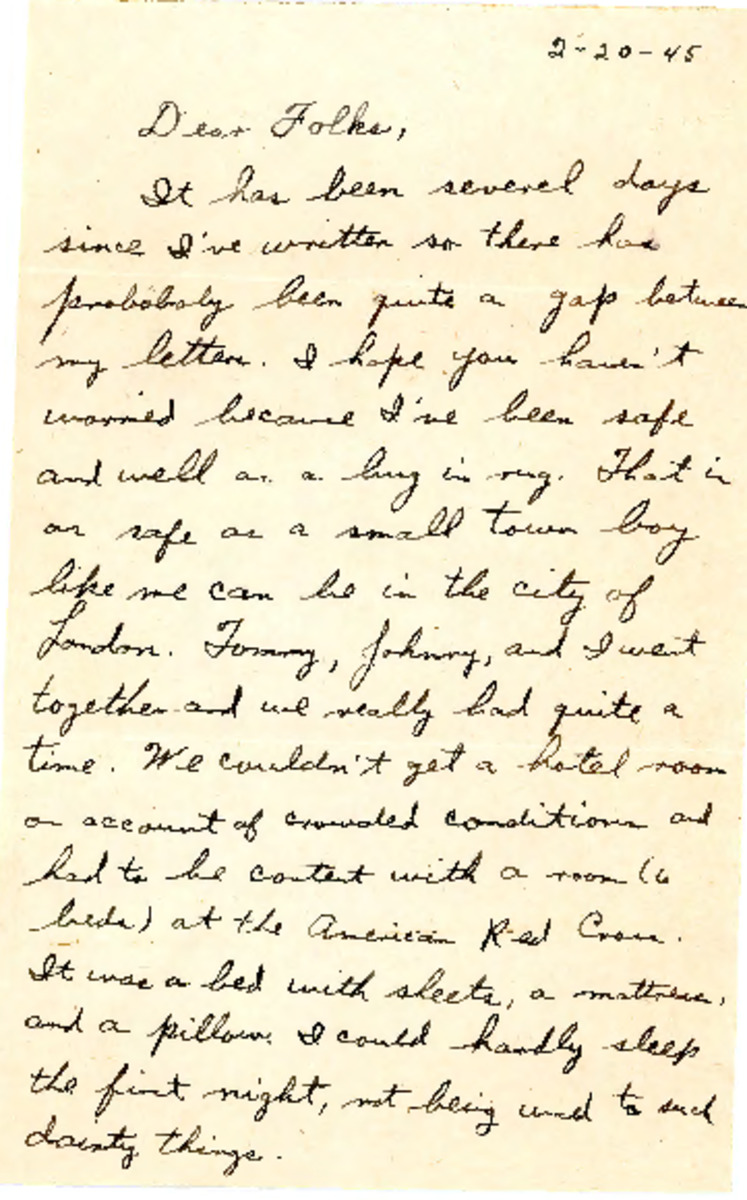 2-20-45
Dear Folks,
It has been several days
since I've written so there has
probobaly been quite a gap between
my letters. I hope you haven't
worried because I've been safe
and well as a bug in rug. That is
as safe as a small town boy
like me can be in the city of
London. Tommy, Johnny, and I went
together and we really had quite a
time. We couldn't get a hotel room
on account of crowded conditions and
had to be content with a room (6
beds) at the American Red Cross.
It was a bed with sheets, a mattress,
and a pillow. I could hardly sleep
the first night, not being used to such
dainty things.